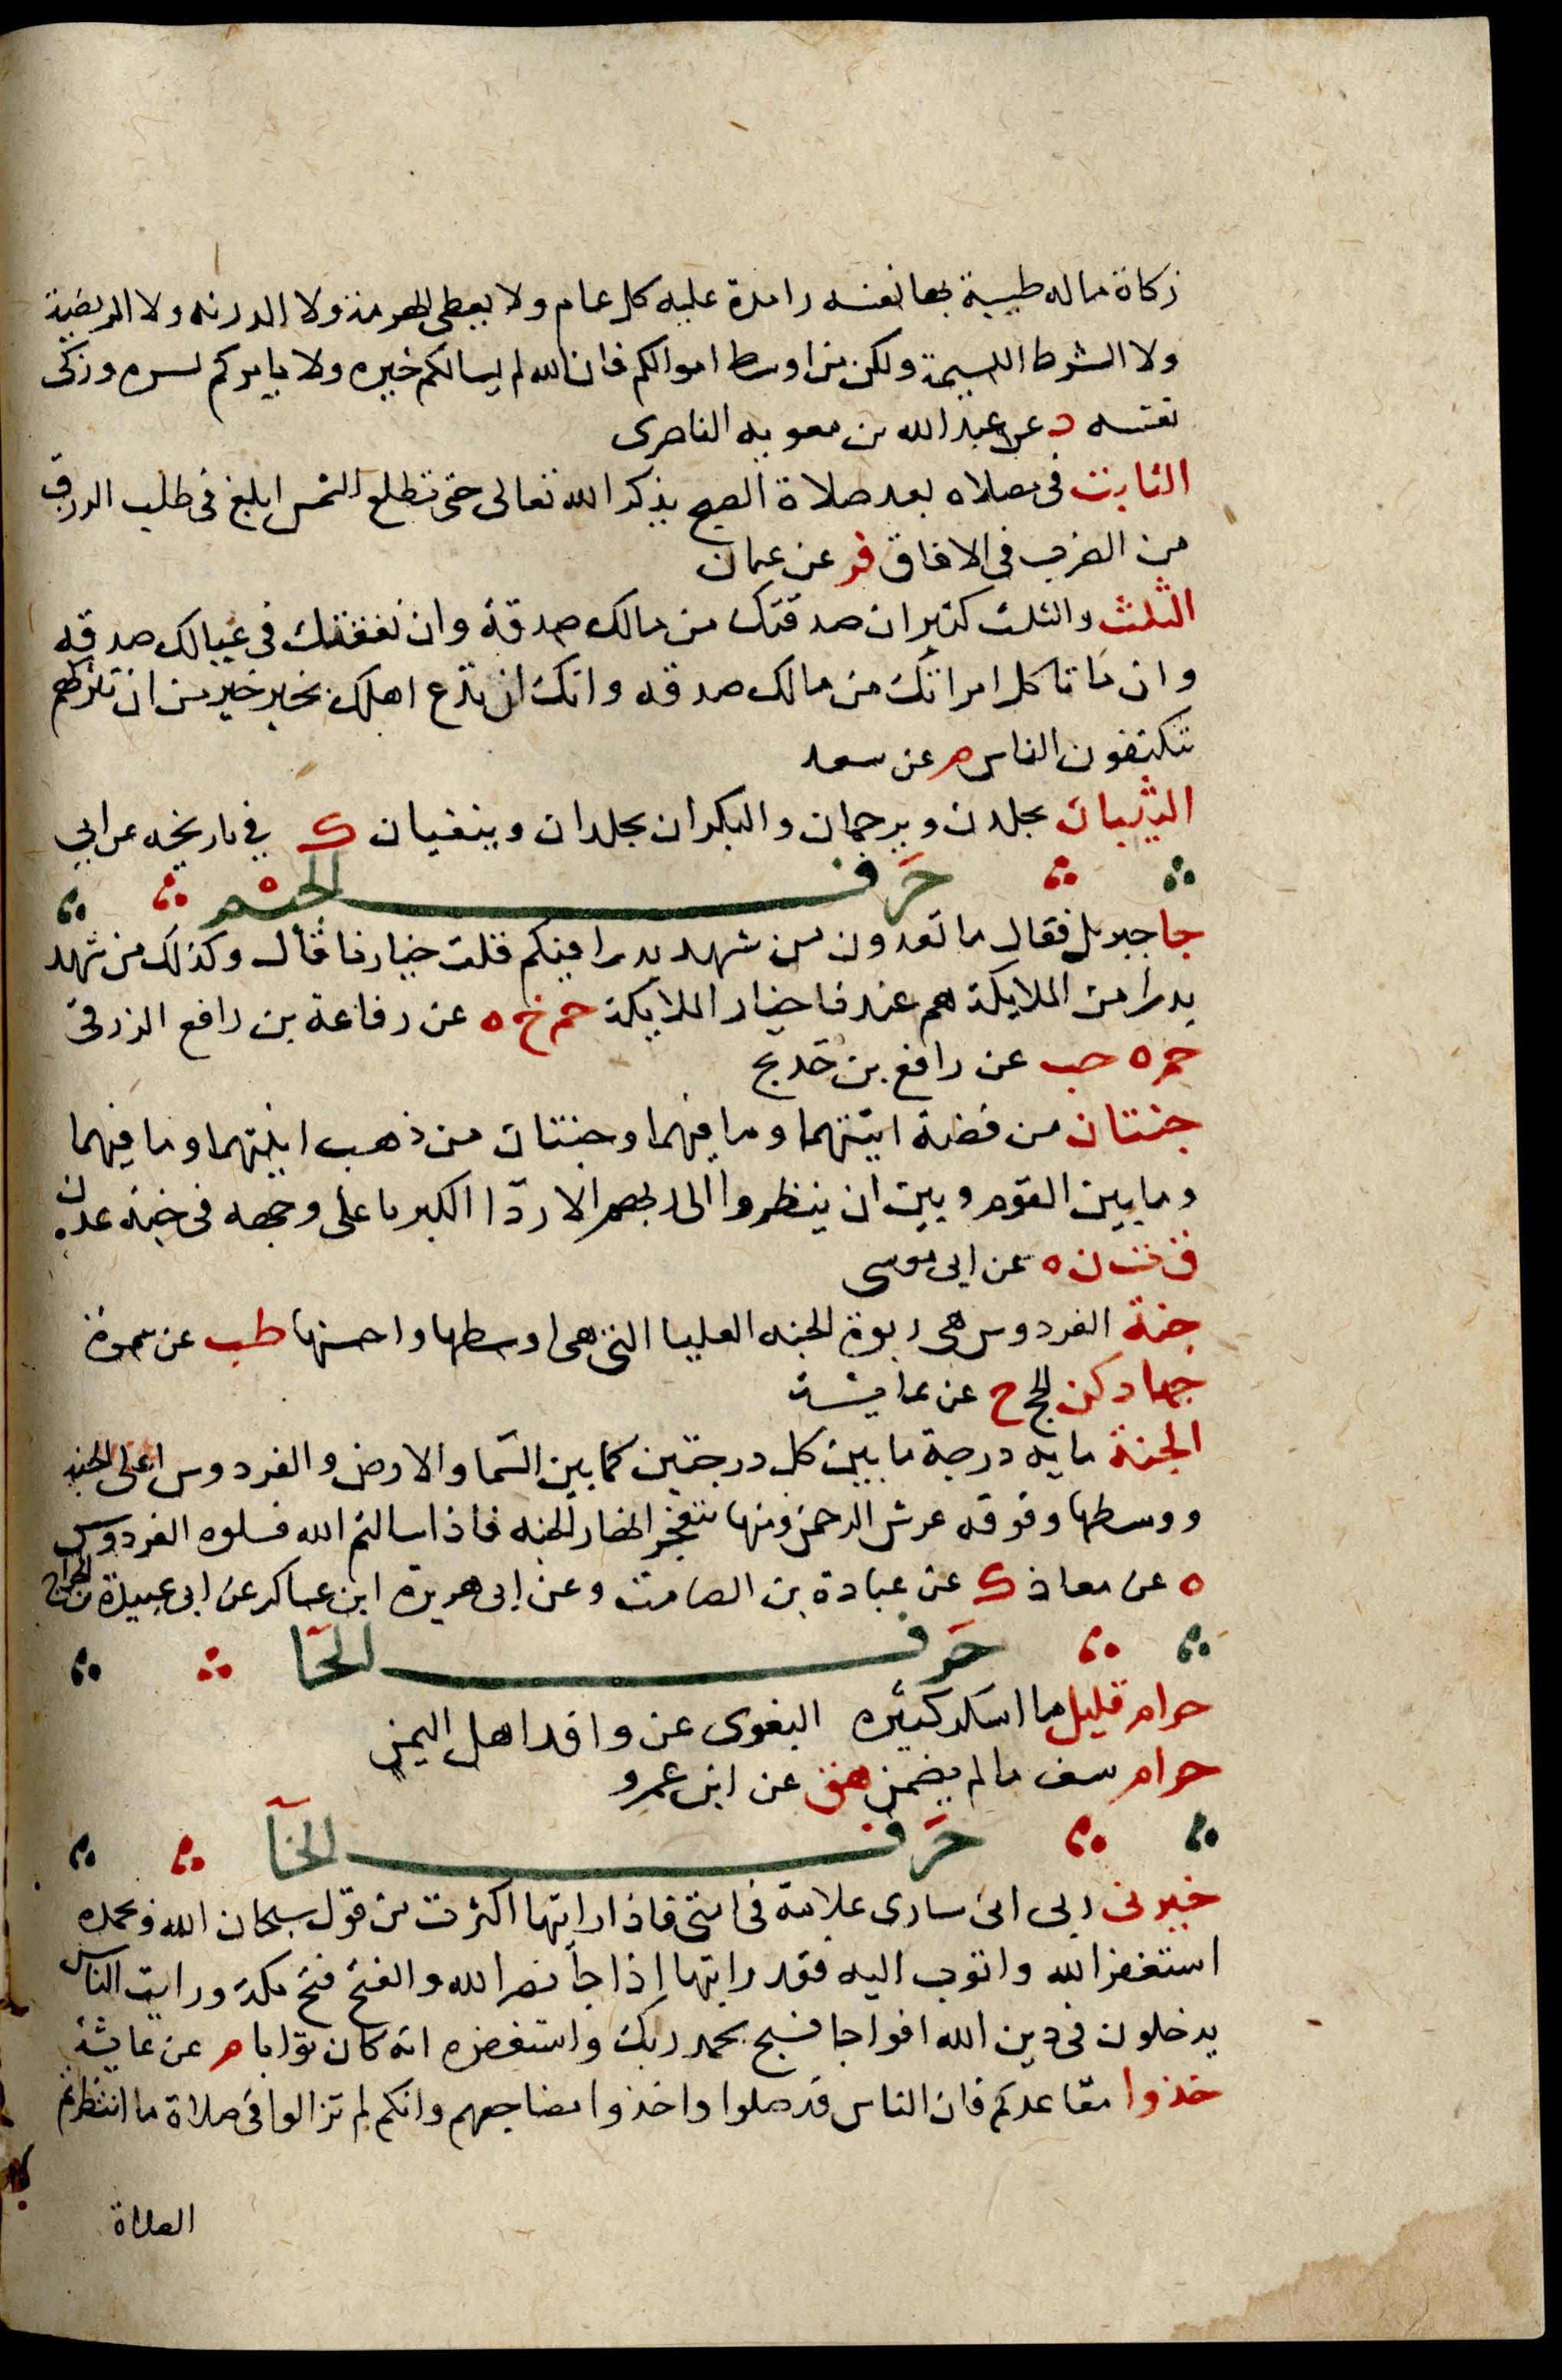 زكاة ماله طيبة بها نفسه رافدة عليه كل عام ولا يعطى الهرمة ولا الدرنه ولا المريضة
ولا الشرط اللييمة ولكن من اوسط اموالكم فان الله لم يسالكم خيره ولا يامركم بشره وزكى
نفسه د عن عبد الله بن معويه الناصرى
الثابت فى مصلاه بعد صلاة الصبح يذكر الله تعالى حتى تطلع الشمس ابلغ فى طلب الرزق
من الضرب فى الافاق فر عن عثمان
الثلث والثلث كثير ان صدقتك من مالك صدقة وان نفقتك فى عيالك صدقه
وان ما تاكل امراتك من مالك صدقه وانك ان تدع اهلك بخير خير من ان تتركهم
تتكففون الناس م عن سعد
الثيبان يجلدان ويرجمان والبكران يجلدان وينفيان ك في تاريخه عن ابي
حرف الجيم
جا جبريل فقال ما تعدون من شهد بدرا فيكم قلت خيارنا قال وكذلك من شهد
بدرا من الملايكة هم عندنا خيار الملايكة حم خ ه عن رفاعة بن رافع الزرقى
حم ه حب عن رافع بن خديج
جنتان من فضة انيتهما وما فيهما وجنتان من ذهب انيتهما وما فيهما
وما بين القوم وبين ان ينظروا الى ربهم الا ردا الكبريا على وجهه فى جنة عدن
ق ت ن ه عن ابى موسى
جنة الفردوس هى ربوة الجنه العليا التى هى اوسطها واحسنها طب عن سمرة
جهادكن الحج خ عن عايشة
الجنة مايه درجة ما بين كل درجتين كما بين السما والارض والفردوس اعلى الجنه
ووسطها وفوقه عرش الرحمن ومنها تتفجر انهار الجنه فاذا سالتم الله فسلوه الفردوس
ه عن معاذ ك عن عبادة بن الصامت وعن ابى هريرة ابن عساكر عن ابى عبيدة بن الجراح
حرف الحا
حرام قليل ما اسكر كثيره البغوى عن وافد اهل اليمن
حرام سف مالم يضمن هق عن ابن عمرو
حرف الخآ
خبرنى ربى انى سارى علامة فى امتى فاذا رايتها اكثرت من قول سبحان الله وبحمده
استغفر الله واتوب اليه فقد رايتها اذا جآ نصر الله والفتح فتح مكة ورايت الناس
يدخلون فى دين الله افواجا فسبح بحمد ربك واستغفره انه كان توابا م عن عايشة
خذوا مقاعدكم فان الناس قد صلوا واخذوا مضاجعهم وانكم لم تزالوا فى صلاة ما انتظرتم
الصلاة